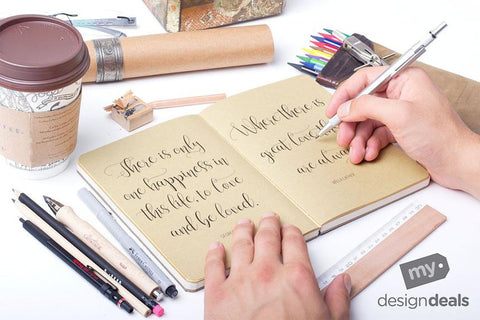 There is only
one happiness in
this life, to love
and be loved.
Where there is
great love
are
WILLA CATHER
my
designdeals